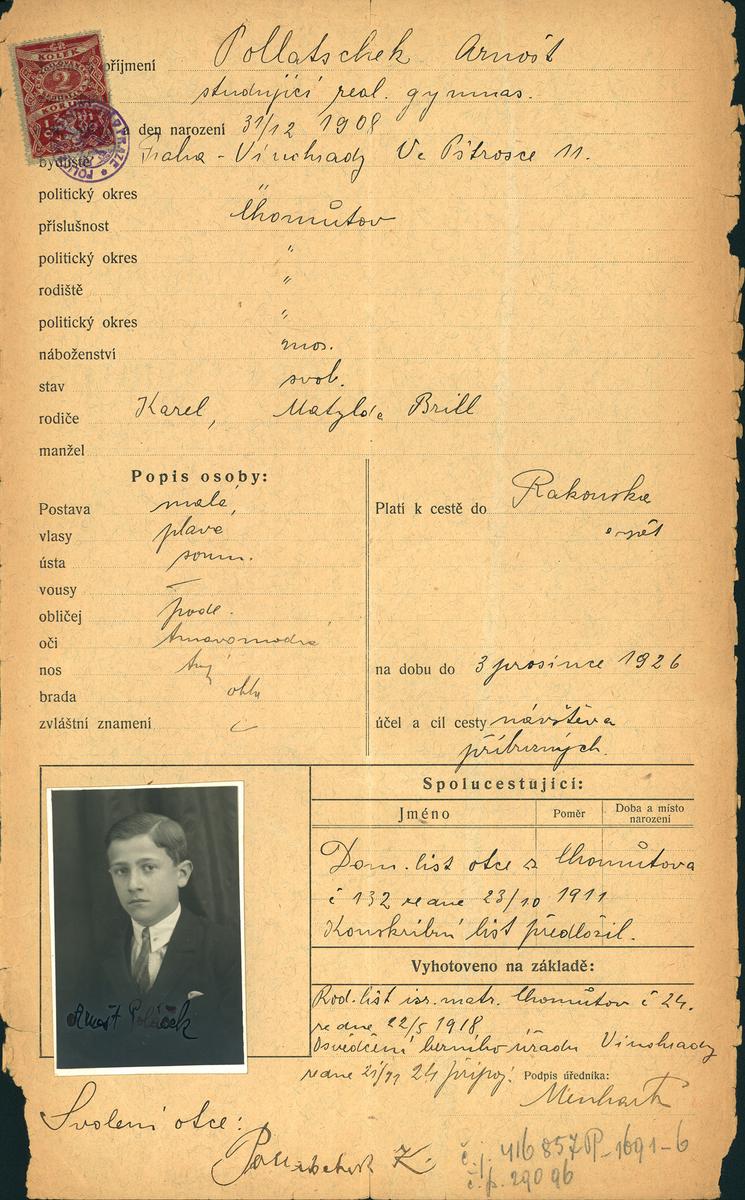 KOLEK
2
příjmení Pollatschek Arnošt
studující real. gymnas.
a den narození 31/12 1908
bydliště Praha - Vinohrady Ve Pštrosce 11.
politický okres "
příslušnost Chomůtov
politický okres "
rodiště "
politický okres "
náboženství mos.
stav svob.
rodiče Karel, Matylda Brill
manžel
Popis osoby:
Postava malá,
vlasy plavé
ústa soum.
vousy —
obličej podl.
oči tmavomodré
nos týž
brada obla
zvláštní znamení
Platí k cestě do Rakouska
a zpět
na dobu do 3 prosince 1926
účel a cíl cesty návštěva
příbuzných.
Spolucestující:
Jméno Poměr Doba a místo narození
Dom. list otce z Chomůtova
č 132 ze dne 23/10 1911
Konskribní list předložil.
Vyhotoveno na základě:
Rod. list isr. matr. Chomůtov č 24.
ze dne 22/5 1918
Osvědčení berního úřadu Vinohrady
ze dne 21/11 24 připoj.
Podpis úředníka:
Menhart
Arnošt Poláček
Svolení otce:
Pollatschek K.
č.j. 416857P-1691-6
č.p. 29096